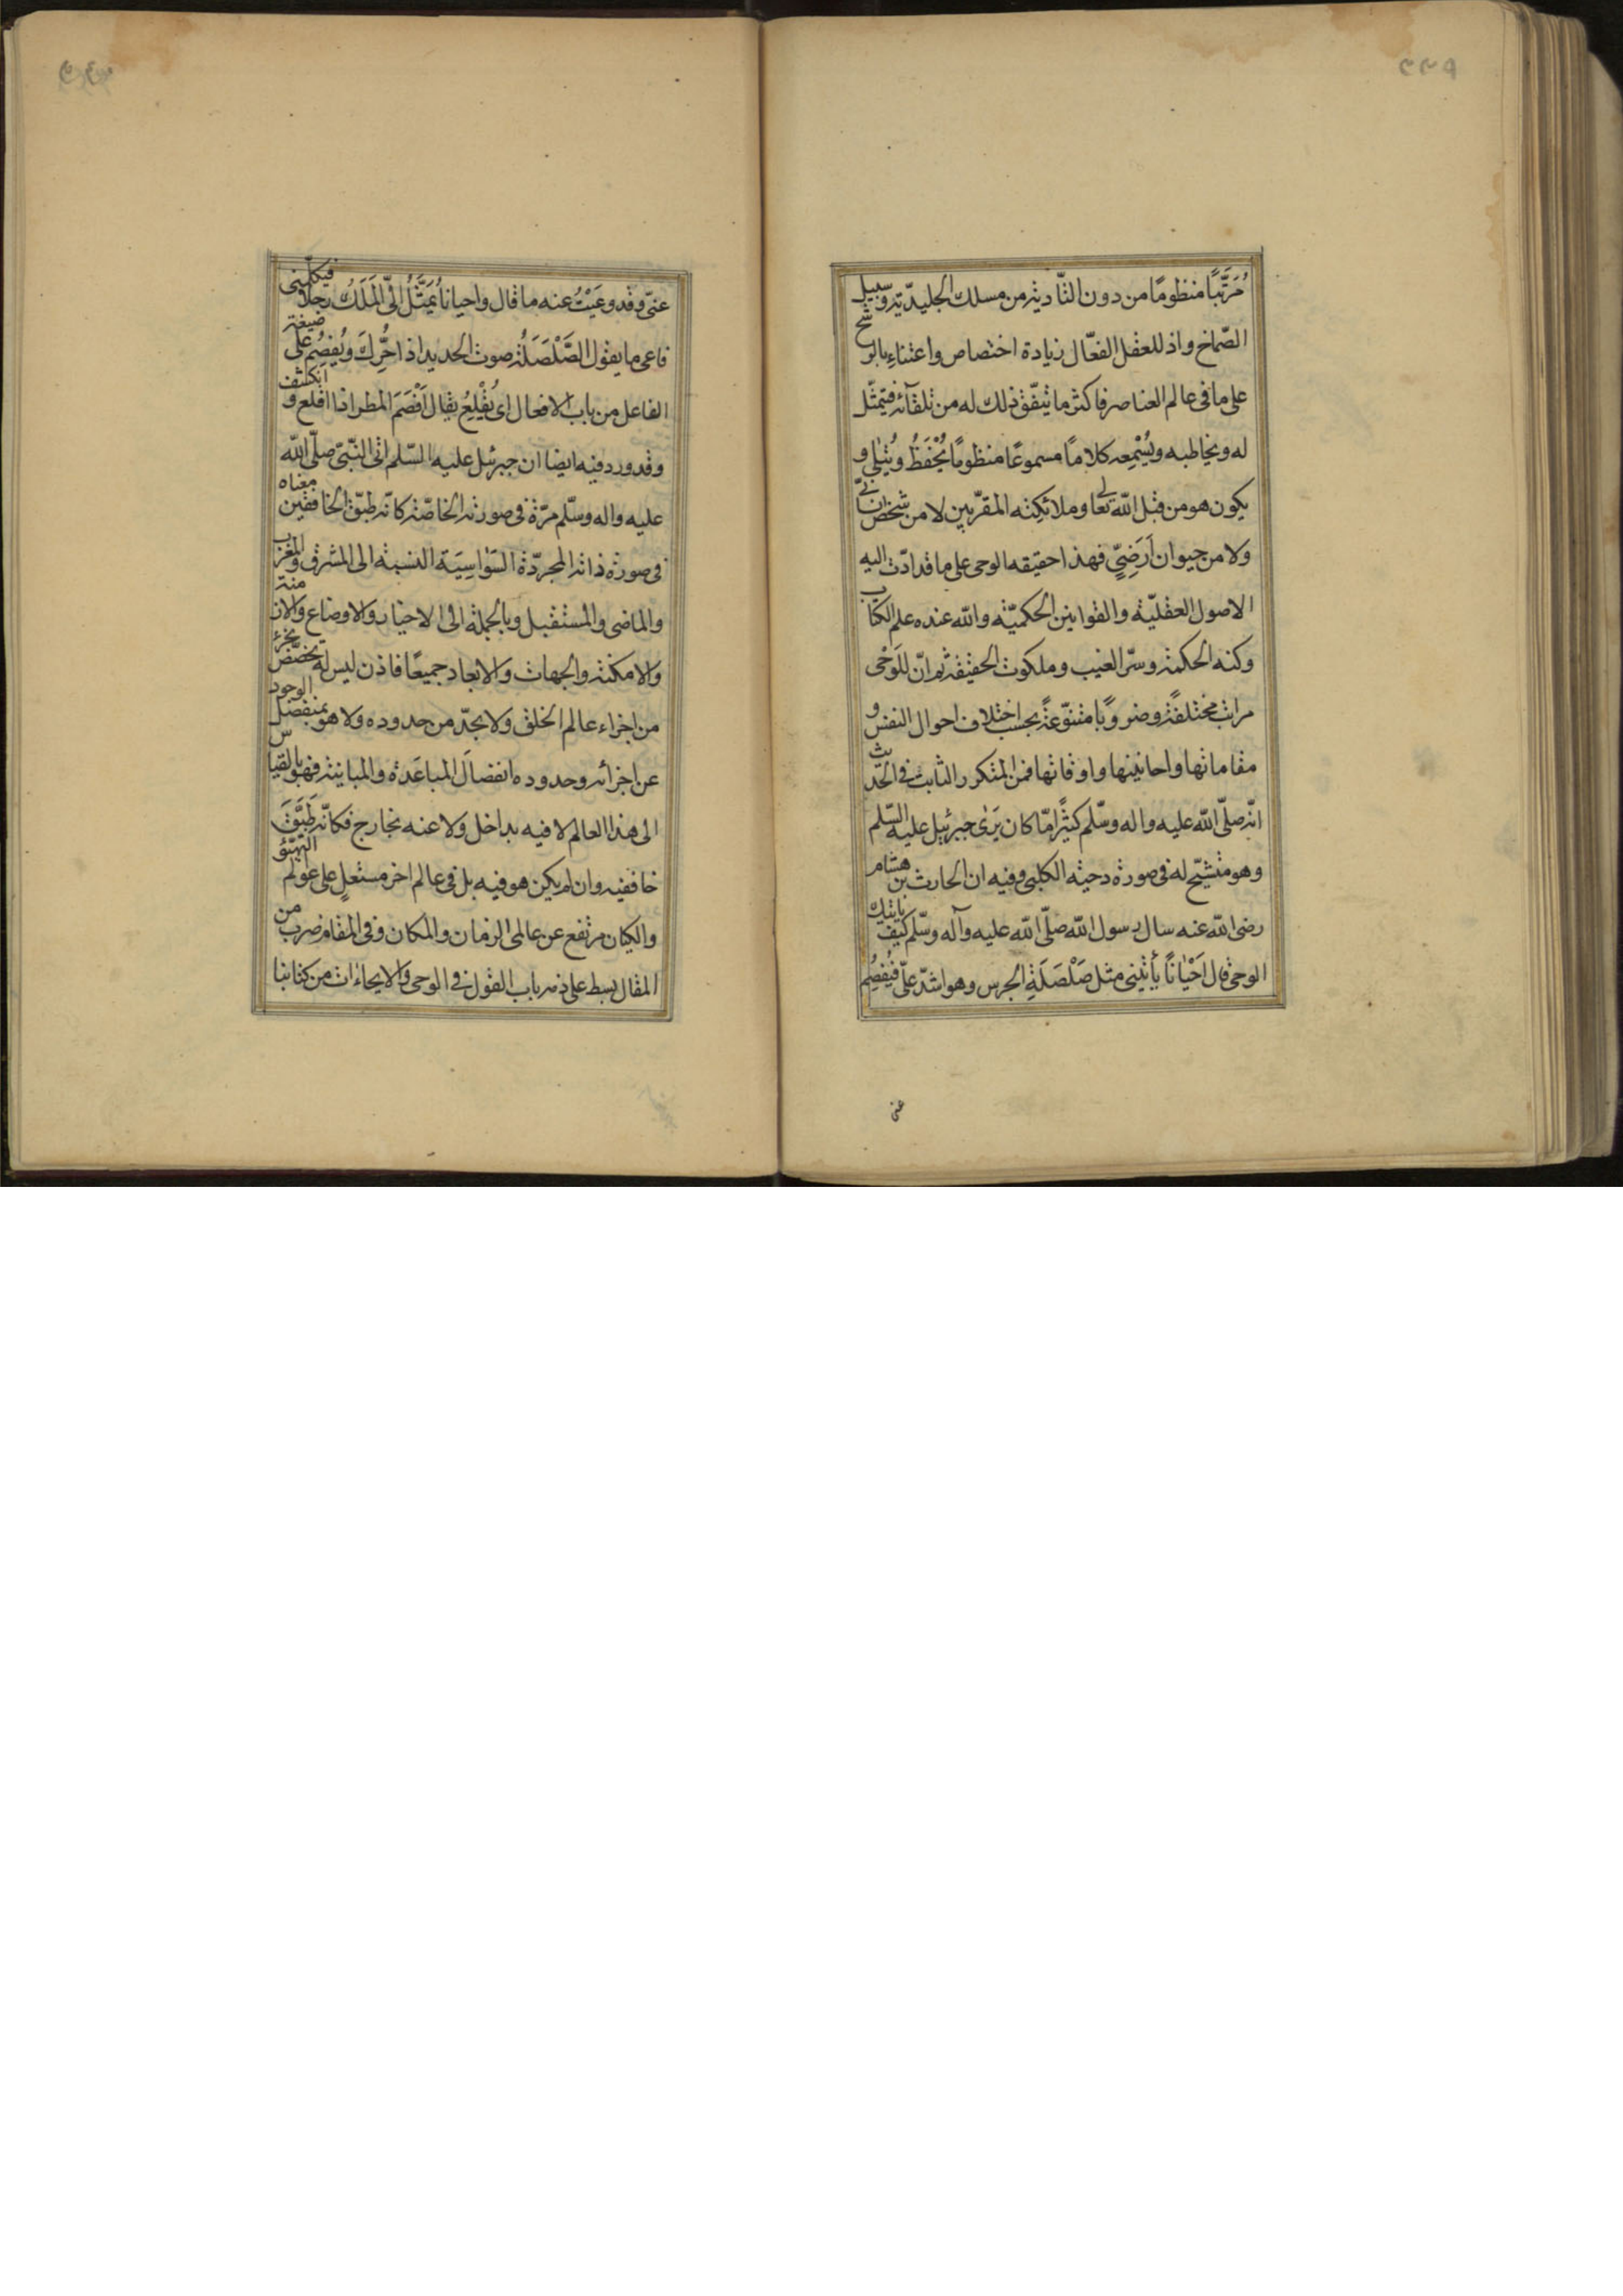 مُرَتَّبًا منظومًا من دون التّأدية من مسلك الجليديّة وسبيل
الصّماخ واذ للعقل الفعّال زيادة اختصاص واعتناءٍ بالوشح
على ما في عالم العناصر فاكثر ما يتّفق ذلك له من تلقآئه فيتمثّل
له ويخاطبه ويُسْمِعه كلامًا مسموعًا منظومًا يُحْفَظُ ويُتلى و
يكون هو من قبل اللّه تعالى وملائكته المقرّبين لا من شخص انسانيّ
ولا من حيوان اَرَضِيٍّ فهذا حقيقه الوحى على ما قد ادّت اليه
الاصول العقليّة والقوانين الحكميّة واللّه عنده علم الكتاب
وكنه الحكمة وسرّ الغيب وملكوت الحقيقة ثم انّ للَوَحْى
مراتب مختلفةً وضروبًا متنوّعةً بحسب اختلاف احوال النفس و
مقاماتها واحايينها واوقاتها فمن المتكرر الثابت في الحديث
انّه صلّى اللّه عليه واله وسلّم كثيرًا مّا كان يَرَى جبرئيل عليه السّلم
وهو متشبّح له في صورة دحية الكلبى وفيه ان الحارث بن هشام
رضى اللّه عنه سال رسول اللّه صلّى اللّه عليه وآله وسلّم كيف ياتيك
الوحى قال اَحْيانًا يأتينى مثل صَلْصَلَةِ الجرس وهو اشدّ علىّ فيُفصِم
عنى
عنىّ وقد وعَيْتُ عنه ما قال واحيانا يُمَثَّلُ الىّ المَلَكُ رجلا فيكلّمنى
فاعى ما يقول الصَّلْصَلَة صوت الحديد اذا حُرِّكَ ويُفصِم على صيغة
الفاعل من باب الافعال اى يُقْلِعُ يقال اَفْصَمَ المطر اذا اقلع و انكشف
وقد ورد فيه ايضا ان جبرئيل عليه السّلم اتى النّبىّ صلّى اللّه
عليه واله وسلّم مرّة في صورته الخاصّة كانّه طبّق الخافقين معناه
في صورة ذاته المجرّدة السَوَاسِيَة النسبة الى المشرق والمغرب
والماضى والمستقبل وبالجملة الى الاحياز والاوضاع والازمنة
والامكنة والجهات والابعاد جميعًا فاذن ليس له تخصّص بجزء
من اجزاء عالم الخلق ولا بحدّ من حدوده ولا هو بمنفصل الوجود
عن اجزائه وحدوده انفصالَ المباعَدة والمباينة فهو بالقياس
الى هذا العالم لا فيه بداخل ولا عنه بخارج فكانّه طَبَّقَ
خافقيه وان لم يكن هو فيه بل في عالم اخر مستعلٍ على عوالم التهيّؤ
والكيان مرتفع عن عالمى الزمان والمكان وفى المقام ضرب من
المقال بسط على ذمّه باب القول في الوحى والايحاءات من كتابنا